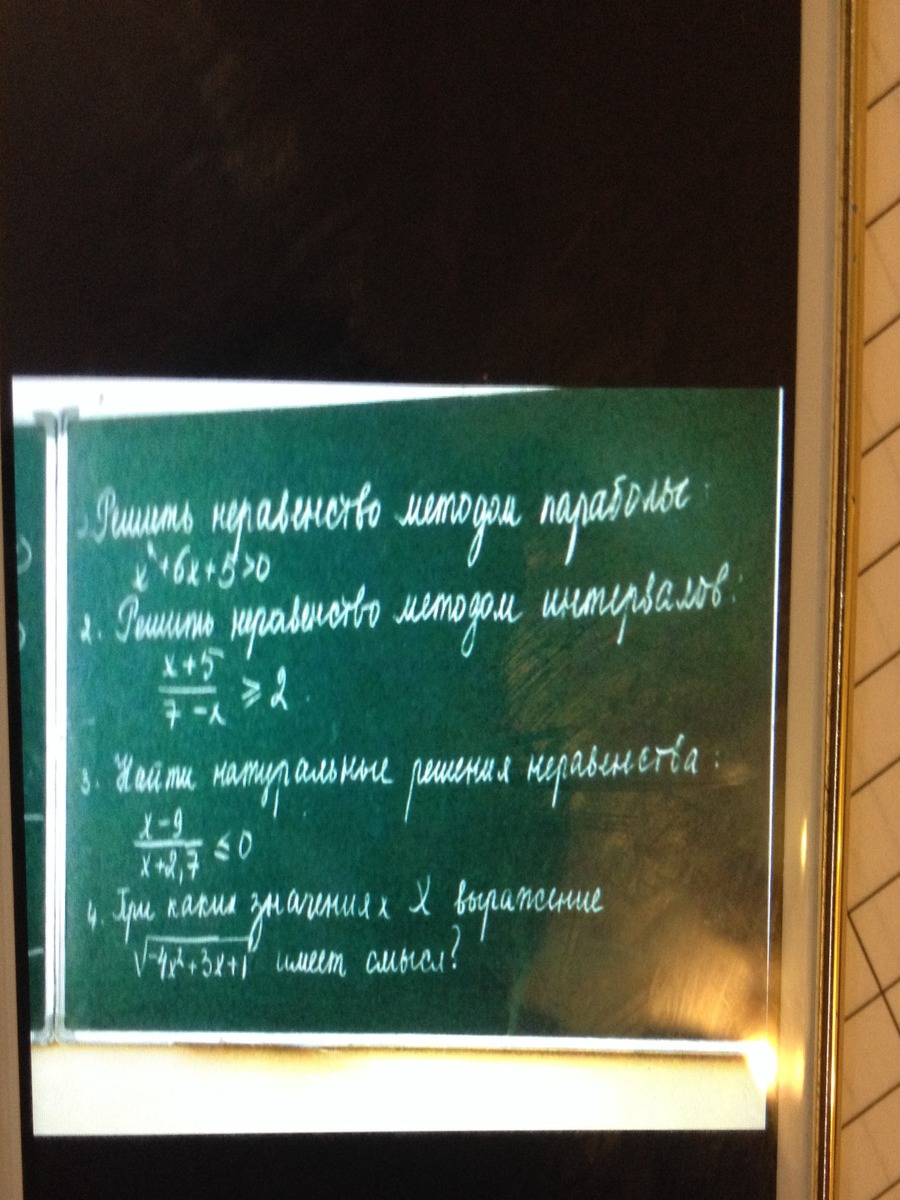 Решить неравенство методом параболы:
x²+6x+5>0
2. Решить неравенство методом интервалов:
x+5
7-x
≥ 2.
3. Найти натуральные решения неравенства:
x-9
x+2,7
≤ 0
4. При каких значениях X выражение
√-4x²+3x+1 имеет смысл?